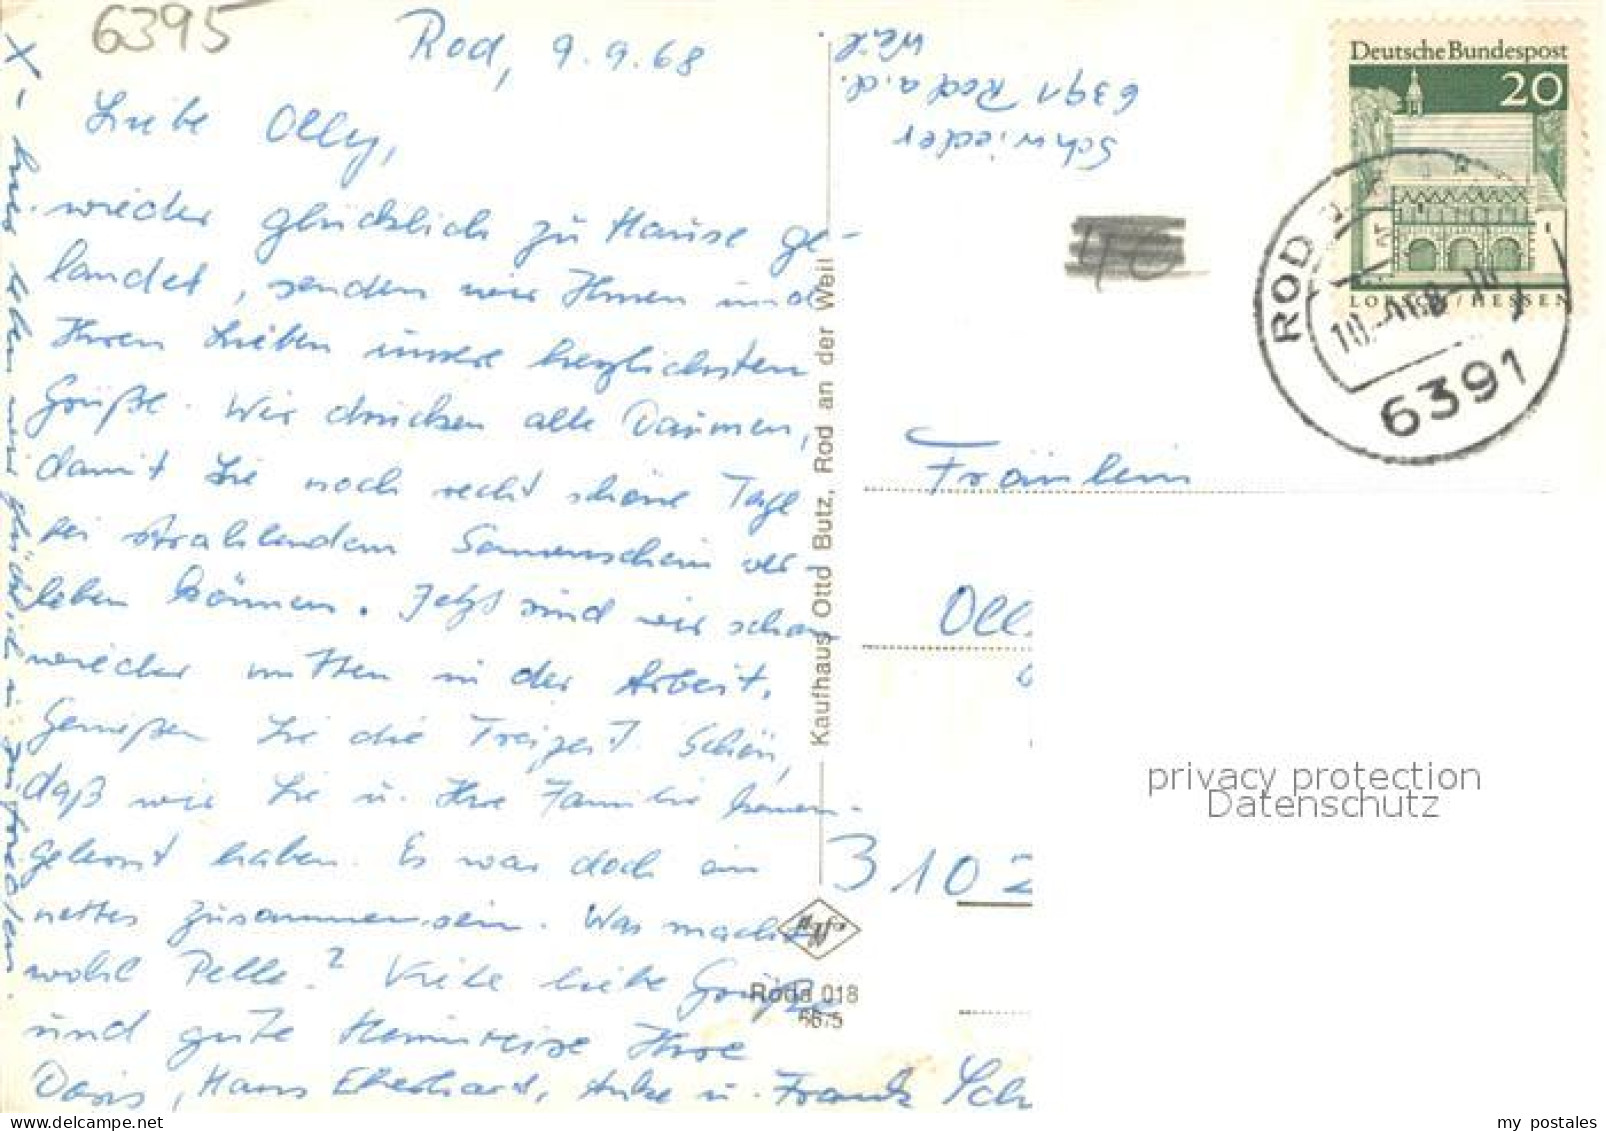 6395
Rod, 9.9.68
Liebe Olly,
wieder glücklich zu Hause ge-
landet, senden wir Ihnen und
Ihren Lieben unsere herzlichsten
Grüße. Wir drücken alle Daumen,
damit Sie noch recht schöne Tage
bei strahlendem Sonnenschein ver-
leben können. Jetzt sind wir schon
wieder mitten in der Arbeit.
Genießen Sie die Freizeit. Schön,
daß wir Sie u. Ihre Familie kennen-
gelernt haben. Es war doch ein
nettes Zusammensein. Was macht
wohl Pelle? Viele liebe Grüße
und gute Heimreise Ihre
Doris, Hans Eberhard, Anke u. Frank Sch
X - hier leben wir glücklich u. zufrieden.
Kaufhaus Otto Butz, Rod an der Weil
Roda 018
5675
Schwieder
6391 Rod a.d.
Weil.
Deutsche Bundespost
20
LORSCH/HESSEN
ROD
6391
Fräulein
Oll
3102
privacy protection
Datenschutz
my postales